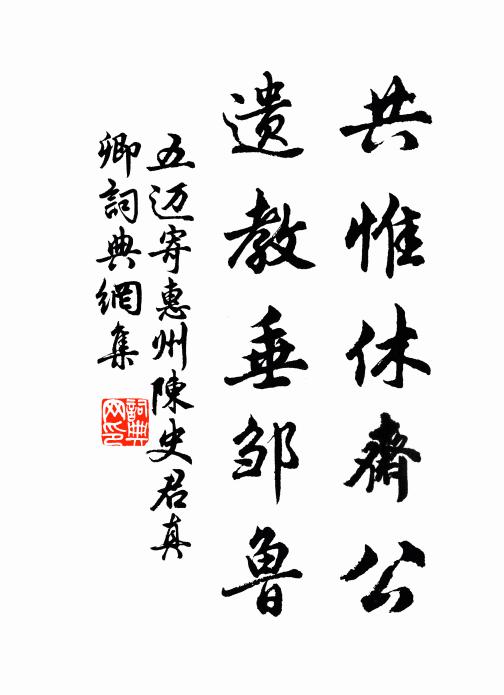 共惟休齋公
遺教垂邹魯
五迈寄惠州陳史君真
卿詞典網集
詞典网印